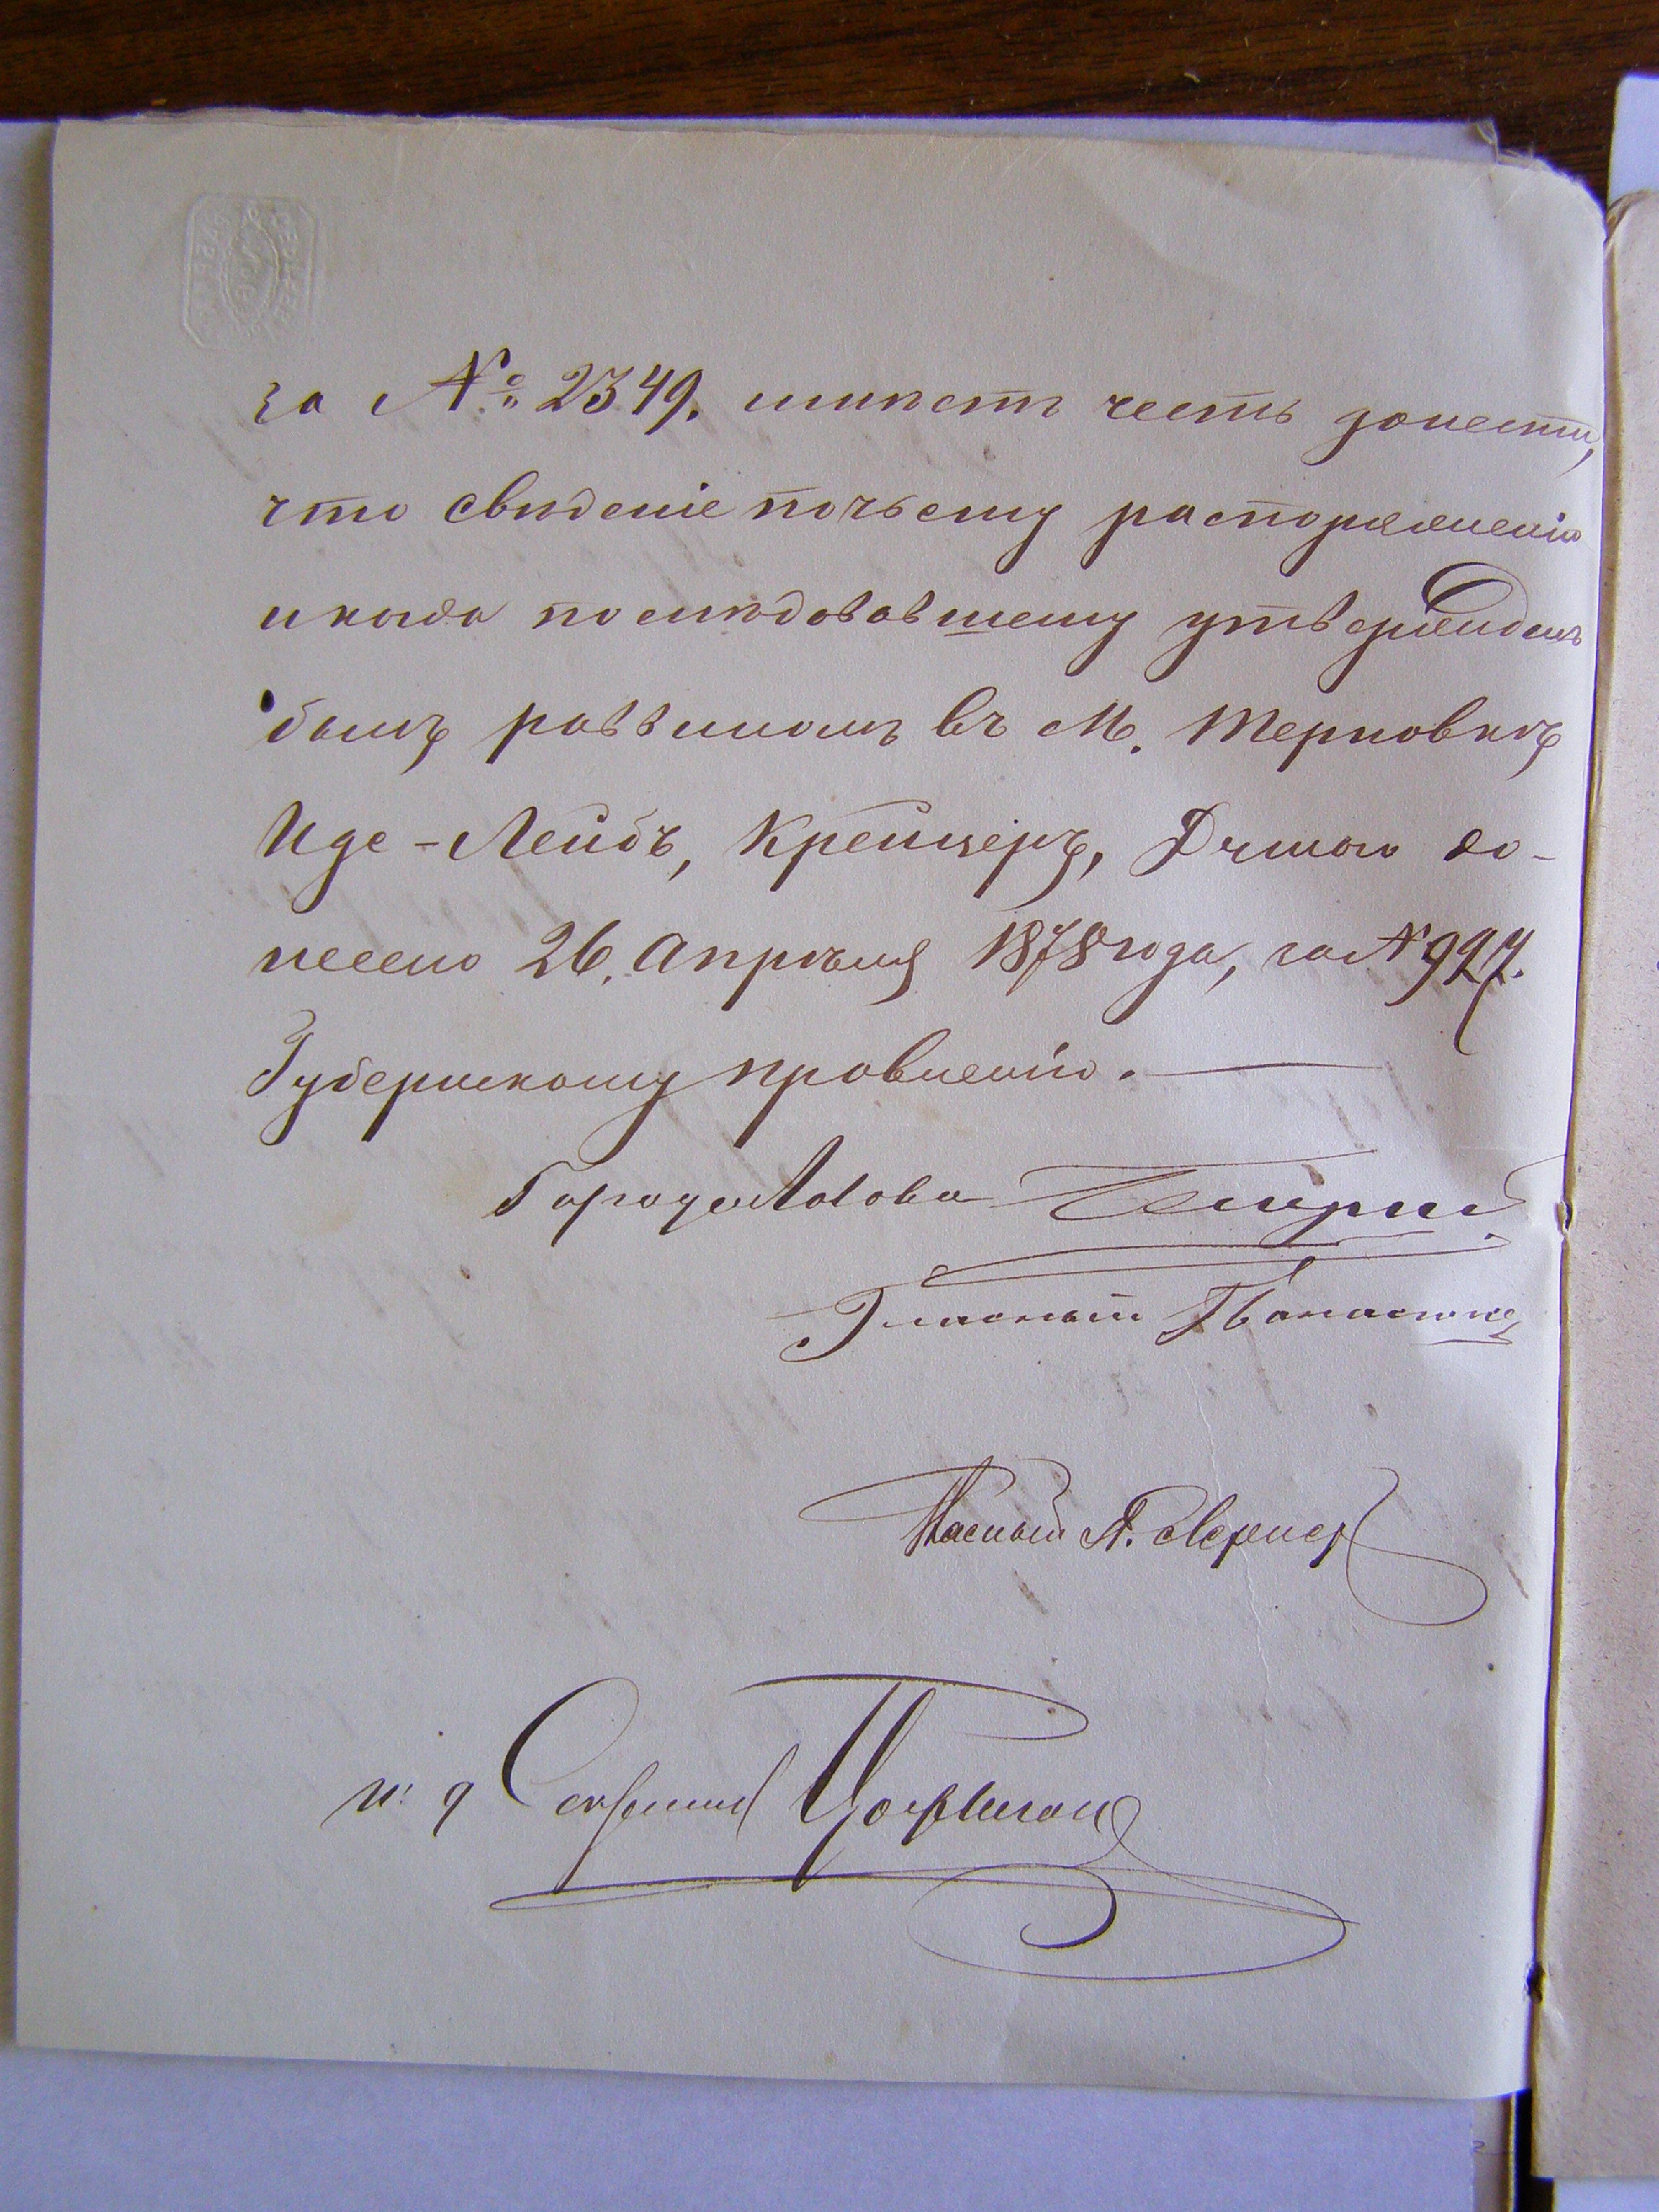 за № 2349. имѣетъ честь донести,
что сведеніе почьему распоряженію
и когда последовавшему утвержденъ
былъ раввиномъ въ М. Терновкѣ
Иде-Лейбъ, Крейцеръ, Думою до-
несено 26. Апрѣля 1878 года, за № 927.
Губернскому правленію.
Городская Голова
Гласный
Гласный А. Лернер
и. д. Секретаря